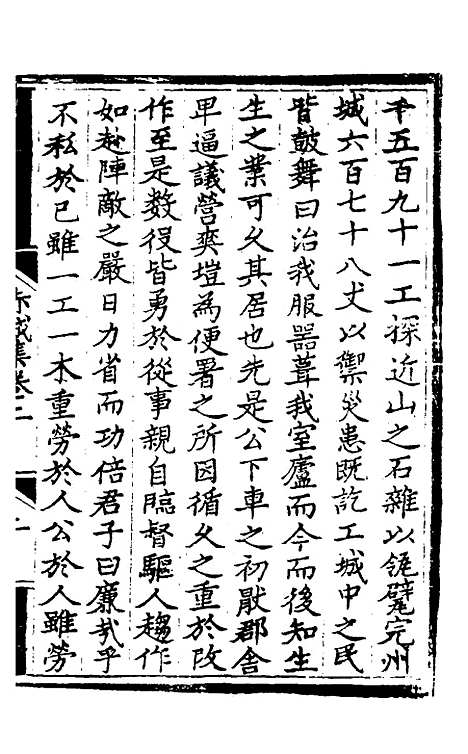 千五百九十一工採近山之石雜以瓴甓完州
城六百七十八丈以禦災患旣訖工城中之民
皆鼓舞曰治我服器葺我室廬而今而後知生
生之業可久其居也先是公下車之初厭郡舎
卑逼議營爽塏為便署之所因循久之重於改
作至是数役皆勇於從事親自臨督驅人趨作
如赴陣敵之嚴日力省而功倍君子曰廉㢤乎
不私於已雖一工一木重勞於人公於人雖勞
赤城集卷二